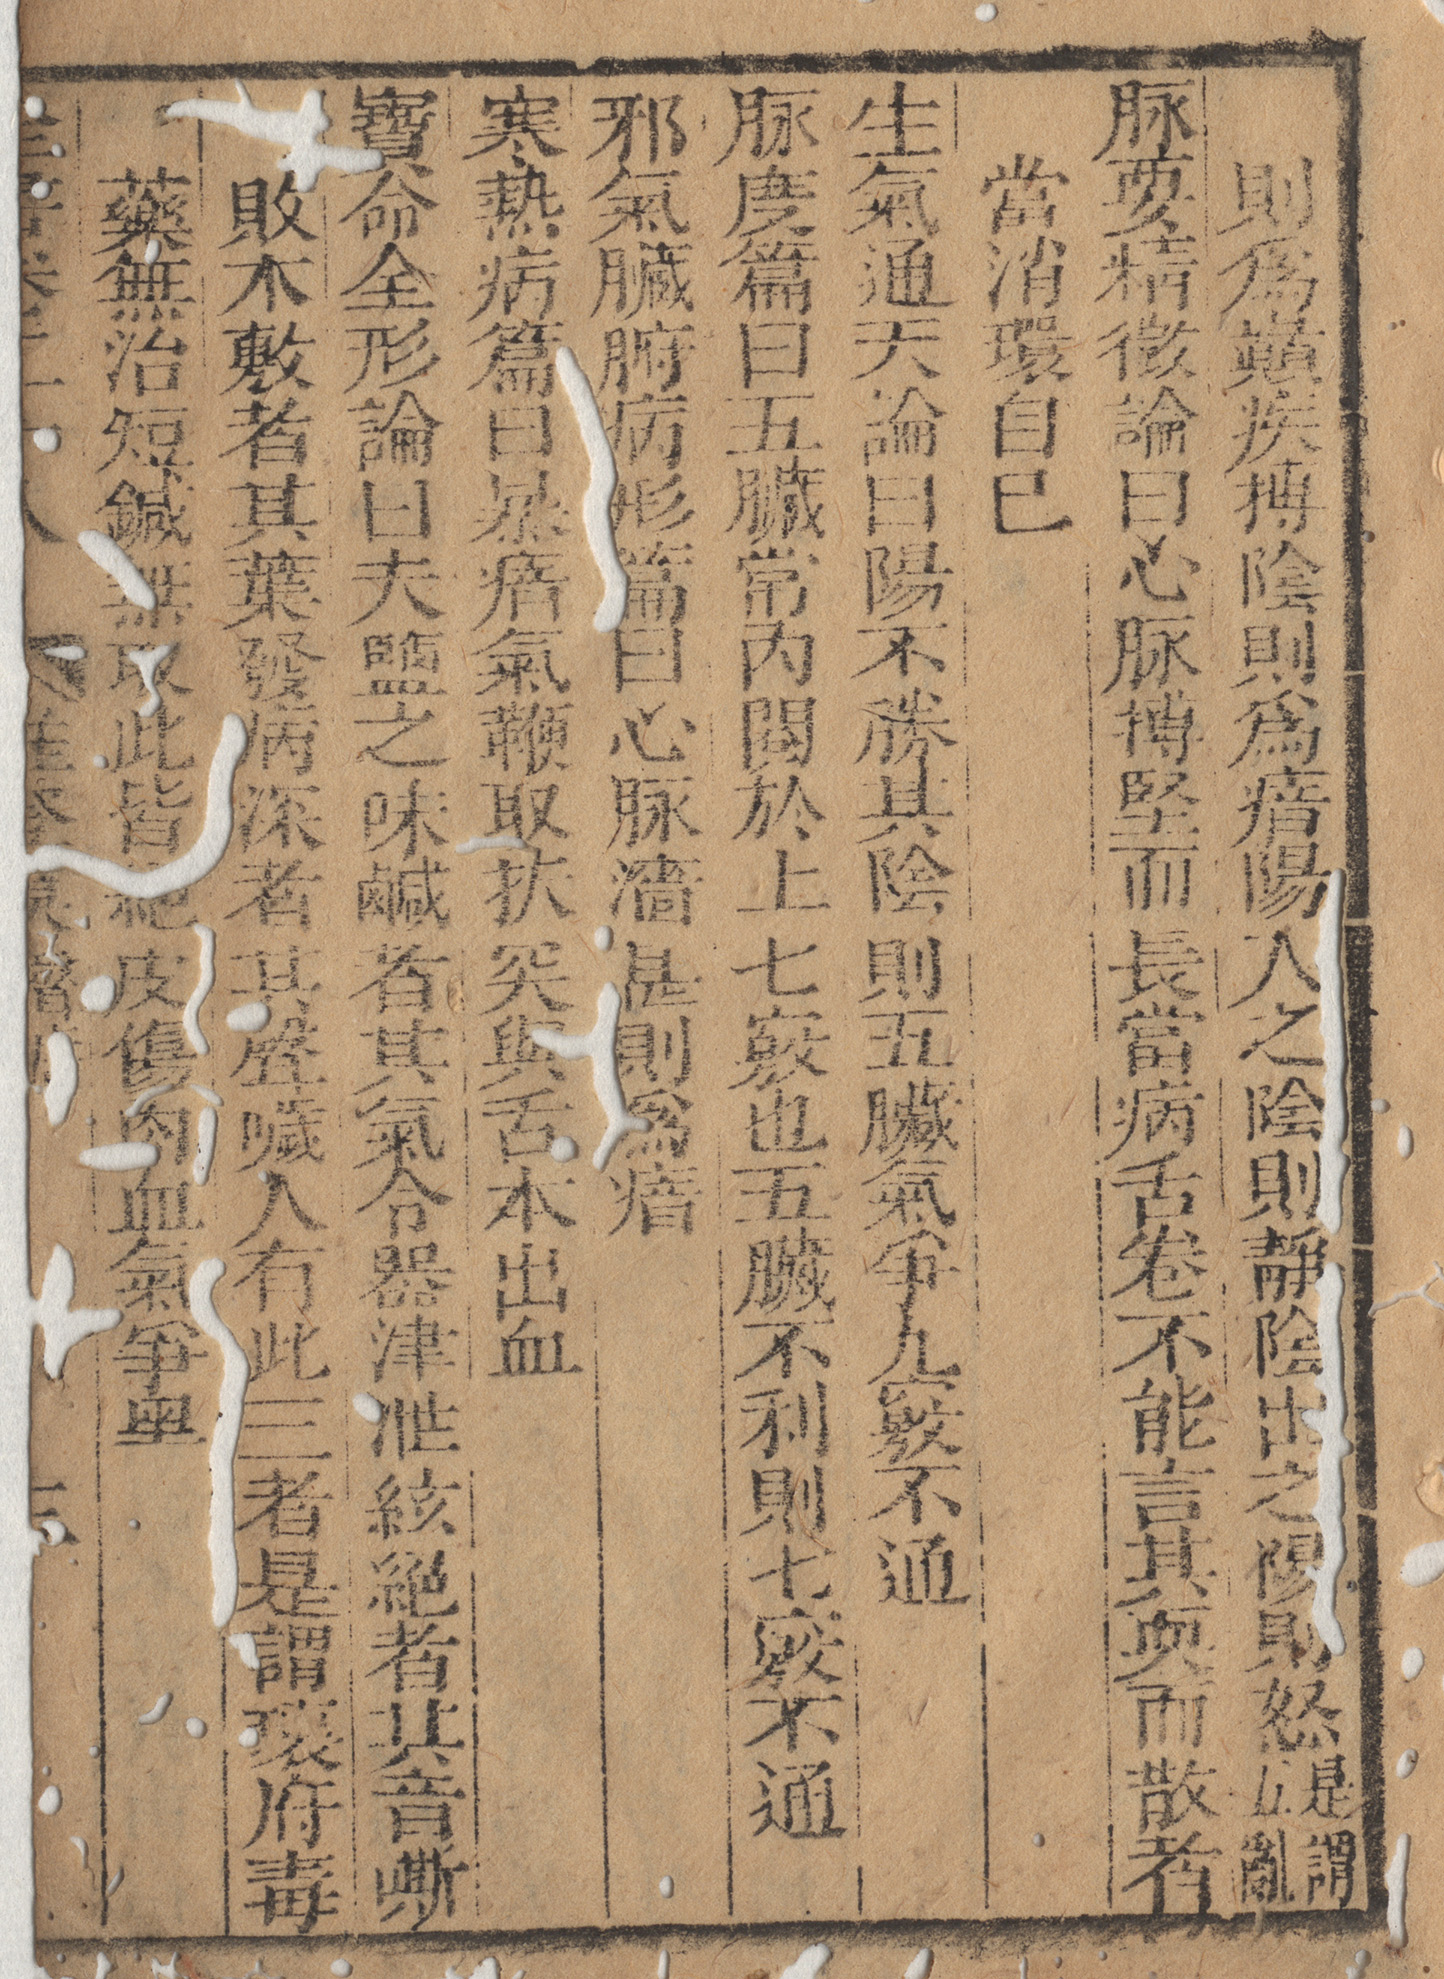 則爲巔疾搏陰則爲瘖陽入之陰則靜陰出之陽則怒是謂五亂
脉要精微論曰心脉搏堅而長當病舌卷不能言其耎而散者
當消環自已
生氣通天論曰陽不勝其陰則五臟氣爭九竅不通
脉度篇曰五臟常內閱於上七竅也五臟不利則七竅不通
邪氣臟腑病形篇曰心脉濇甚則爲瘖
寒熱病篇曰暴瘖氣鞕取扶突與舌本出血
寶命全形論曰夫鹽之味鹹者其氣令器津泄絃絕者其音嘶
敗木敷者其葉發病深者其聲噦人有此三者是謂壞府毒
藥無治短鍼無取此皆絕皮傷肉血氣爭異